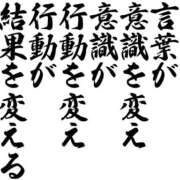 言葉が
意識を変える
意識が
行動を変える
行動が
結果を変える